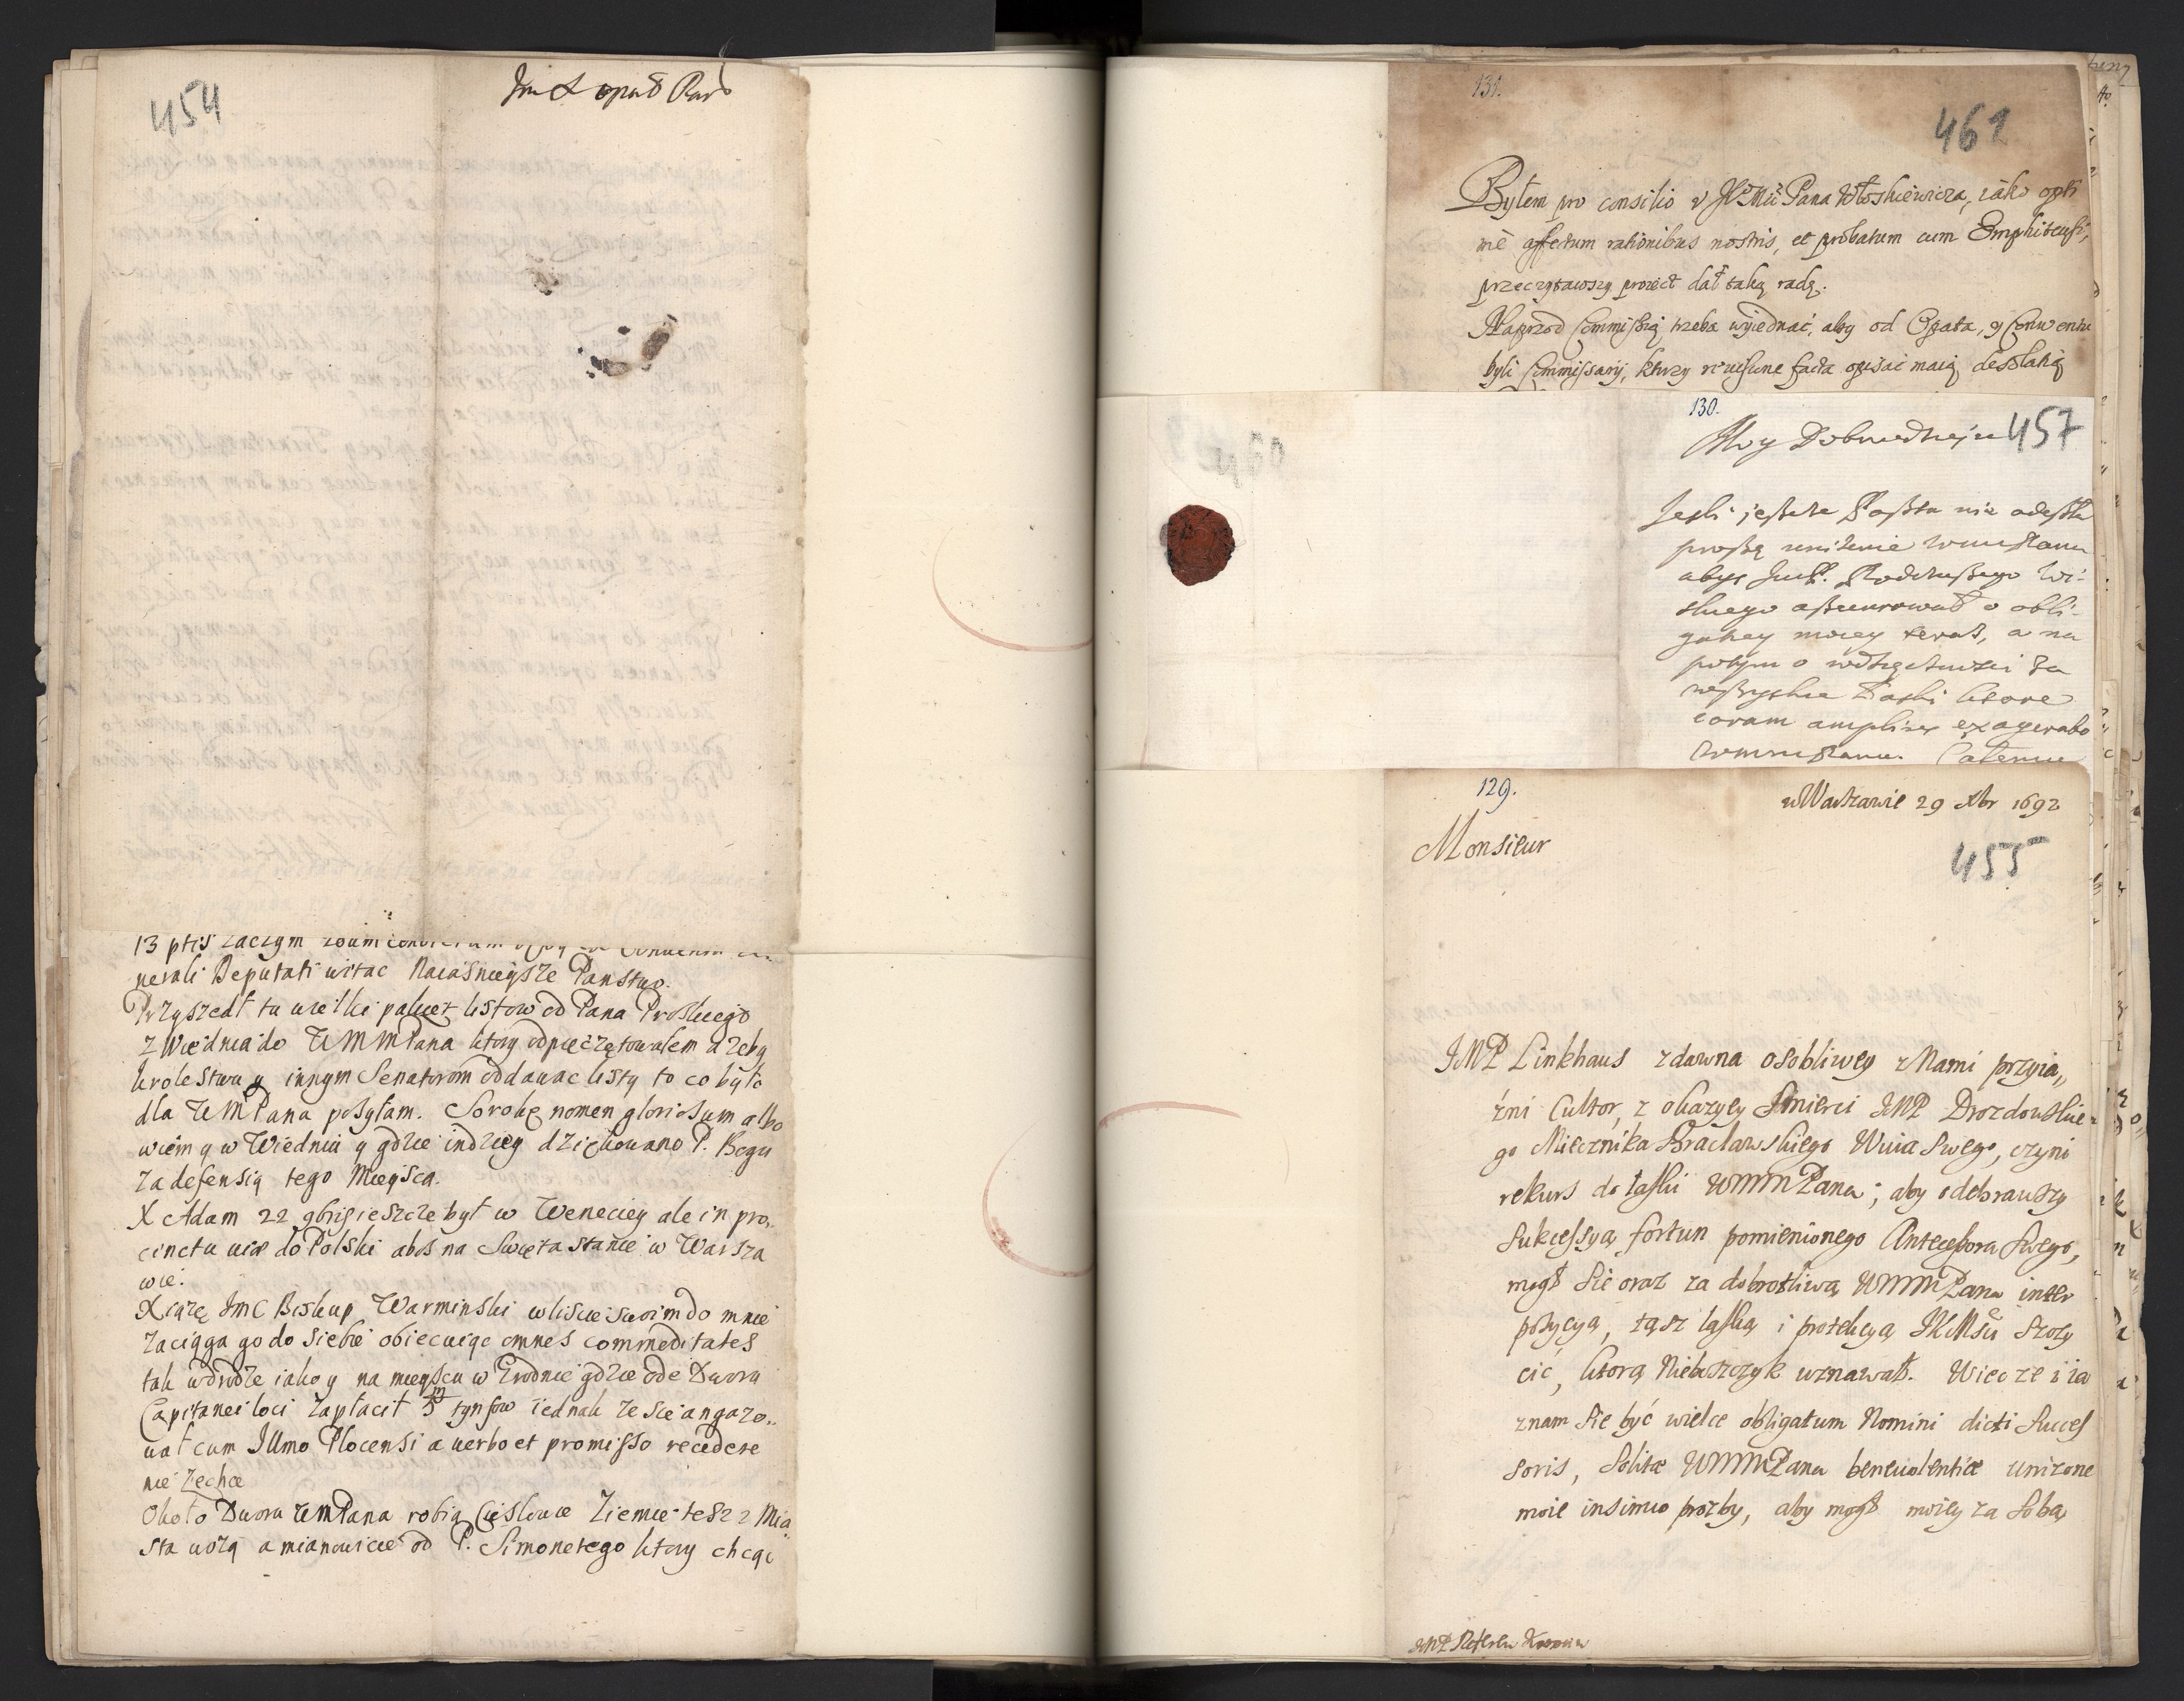 454
13 ptis zaczym
nerali Deputati witac Naiasnieysze Panstwo.
Przyszedł tu wielki pakiet listow od Pana Proskiego
z Wiednia do WMMPana ktory odpieczętowałem a żeby
krolestwu y innym Senatorom oddawac listy to co było
dla WMPana posyłam. Sorokę nomen gloriosum albo
wiem y w Wiedniu y gdzie indziey dziękowano P. Bogu
za defensią tego Mieysca.
X Adam 22 9bris ieszcze był w Weneciey ale in pro,,
cinctu uiæ do Polski abo na Swięta stanie w Warsza
wie.
Xiąrzę Jmc Biskup Warminski w liscie swoim do mnie
zaciąga go do siebie obiecuiąc omnes commoditates
tak w drodze iako y na mieyscu w Grodnie gdzie ode Dwora
Capitanei loci zapłacił 5 tynfow iednak ze sie angazo,,
uał cum Illmo Plocensi a uerbo et promisso recedere
nie zechce
Około Dwora WMPana robią Cieslowie Ziemie tesz z Mia
sta wożą a mianowicie od P. Simonetego ktory chcąc
131.
461
Byłem pro consilio v Pana Włoskiewicza, iako opti
mè affectum rationibus nostris, et probatum cum Emphiteusi,
przeczytawszy proiect dał taką radę.
Naprzod Commissią trzeba wyiednać, aby od Opata, y Conwentu
byli Commissarij, ktorzy opisać maią desolatią
130.
457
Moy Dobrodzieju
Jesli jeszcze Poszta nie odeszła
proszę unizenie WmmPana
abys Podskarbiego Wi:
skiego assecurował o obli-
gatiey moiey teraz, a na
potym o wdzięcznosci za
wszystkie Łaski ktore
coram amplius exagerabo
WmmPanu. Całemu
129.
w Warszawie 29 Xbr 1692
455
Monsieur
JMP Linkhaus zdawna osobliwey z Nami przyia,,
źni Cultor, z okazyey Smierci JMP Drozdowskie-
go Miecznika Bracławskiego Wuia Swego, czyni
rekurs do łaski WMMPana; aby odebrawszy
Sukcessyą fortun pomienionego Antecessora Swego,
mogł Sie oraz za dobrotliwą WMMPana inter
pozycyą, tąsz łaską i protekcyą JKMśći Szczy
cić, ktorą Nieboszczyk uznawał. Wiec że i ia
znam Sie być wielce obligatum Nomini dicti Succes
soris, Solitæ WMMPana beneuolentiæ unizone
moie insinuo prozby, aby mogł moiey za Sobą